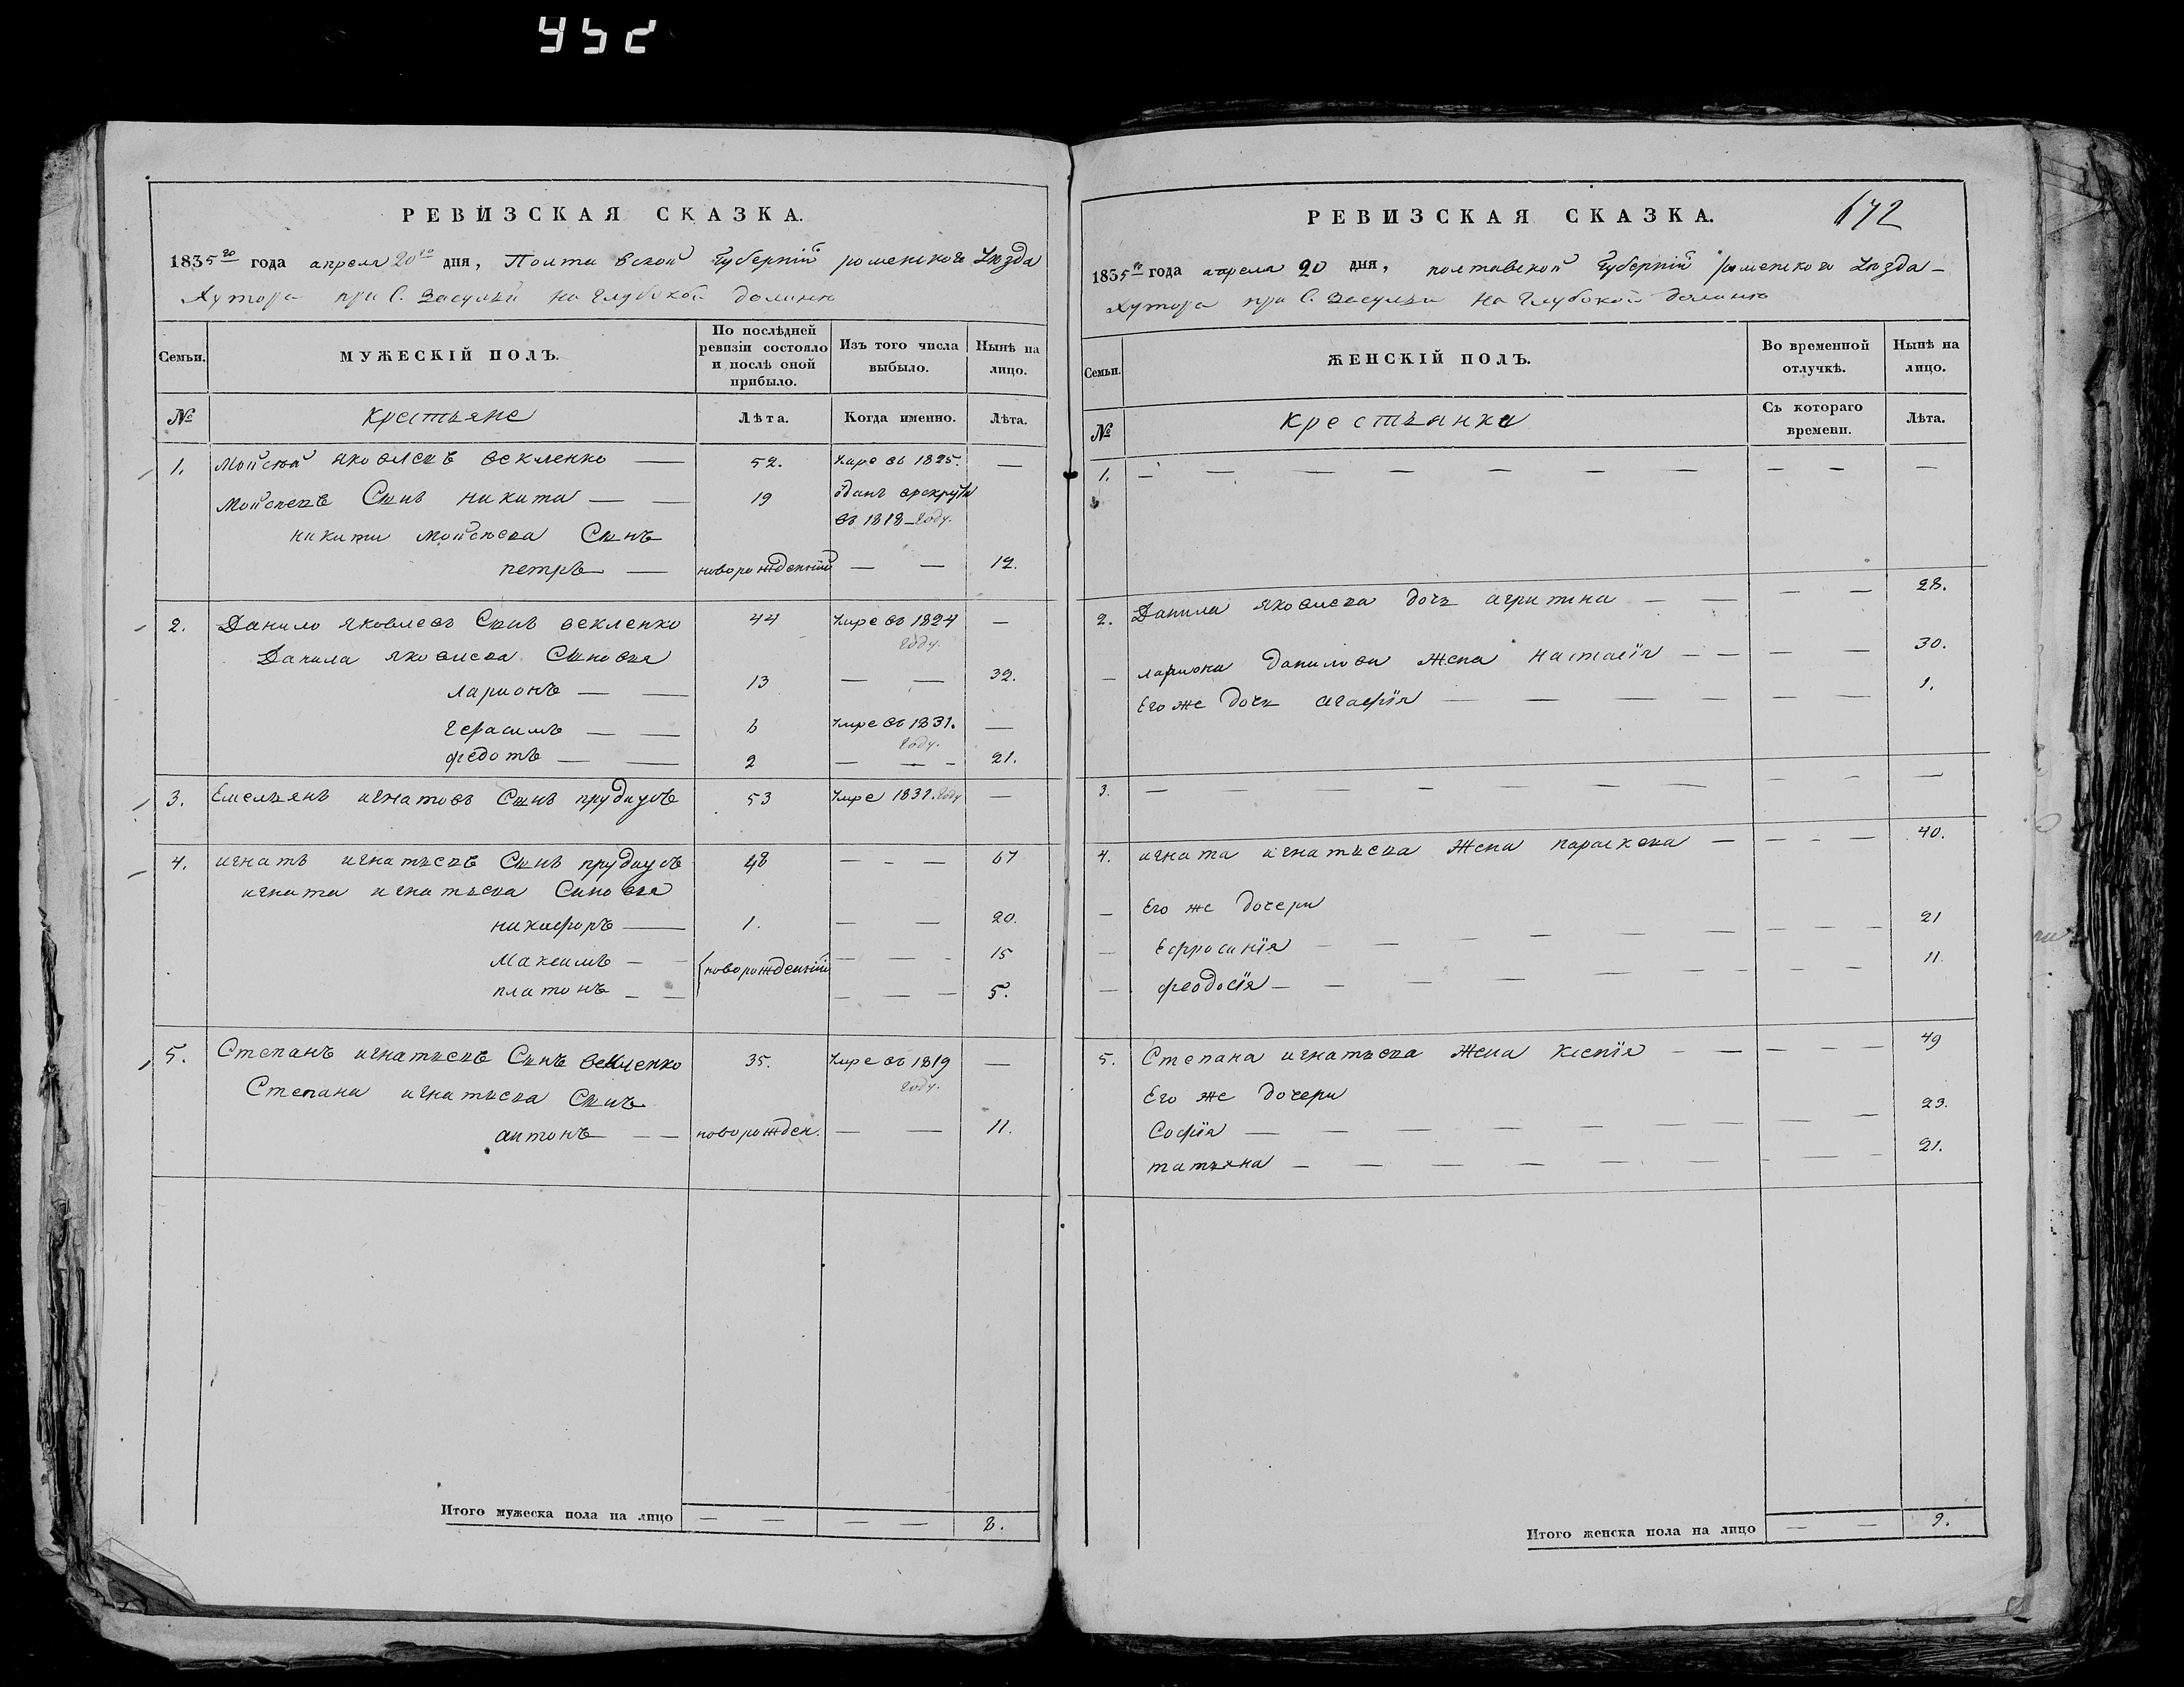 952
РЕВИЗСКАЯ СКАЗКА.
1835го года апреля 20го дня, Полтавской Губерній роменского Уѣзда
Хутора при С. Засульи на Глубокой долинѣ
Семьи.
МУЖЕСКІЙ ПОЛЪ.
По послѣдней ревизіи состояло и послѣ оной прибыло.
Изъ того числа выбыло.
Нынѣ на лицо.
№ крестьяне Лѣта. Когда именно. Лѣта.
1. Мойсѣй яковлевъ векленко — 52. Умре въ 1825. —
Мойсеевъ Сынъ никита — — 19 отданъ врекруты
въ 1818 Году.
никиты мойсѣева Сынъ
петръ — новорожденний — — 12.
2. Данило яковлевъ Сынъ векленко 44 Умре въ 1824 —
Году.
Данила яковлева Сыновья
ларионъ — — 13 — — 32.
Герасимъ — — 6 Умре въ 1831. —
Году.
федотъ — — 2 — — - 21.
3. Емельянъ игнатовъ Сынъ прудиусъ 53 Умре 1831. Году —
4. игнатъ игнатьевъ Сынъ прудиусъ 48 — - — 67
игната игнатьева Сыновья
никифоръ — 1. — — 20.
Максимъ — новорожденніи — - — 15
платонъ — — — — — 5.
5. Степанъ игнатьевъ Сынъ векленко 35. Умре въ 1819 —
Году.
Степана игнатьева Сынъ
антонъ — — новорожден. — — 11.
Итого мужеска пола на лицо — — — — 8.
672
РЕВИЗСКАЯ СКАЗКА.
1835го года апреля 20 дня, полтавской Губерній роменского Уѣзда —
Хутора при С. Засульи на Глубокой долинѣ
Семьи.
ЖЕНСКІЙ ПОЛЪ.
Во временной отлучкѣ.
Нынѣ на лицо.
№ крестьянки Съ котораго времени. Лѣта.
1. — — — — — — — — — — —
2. Данила яковлева дочь агритина — — — — 28.
— лариона данилова жена настасія — — — — 30.
Его же дочь агафія — — — — — — 1.
3. — — — — — — — — — —
4. игната игнатьева Жена параскева — — - — 40.
— Его же дочери
— Ефросинія — — — — — — — — — 21
— феодосія — — — — — — - — — 11.
5. Степана игнатьева Жена ксенія — — — — — 49
Его же дочери
Софія — — — — — — — — — 23.
татьяна — — — — — — — — — 21.
Итого женска пола на лицо — — 9.